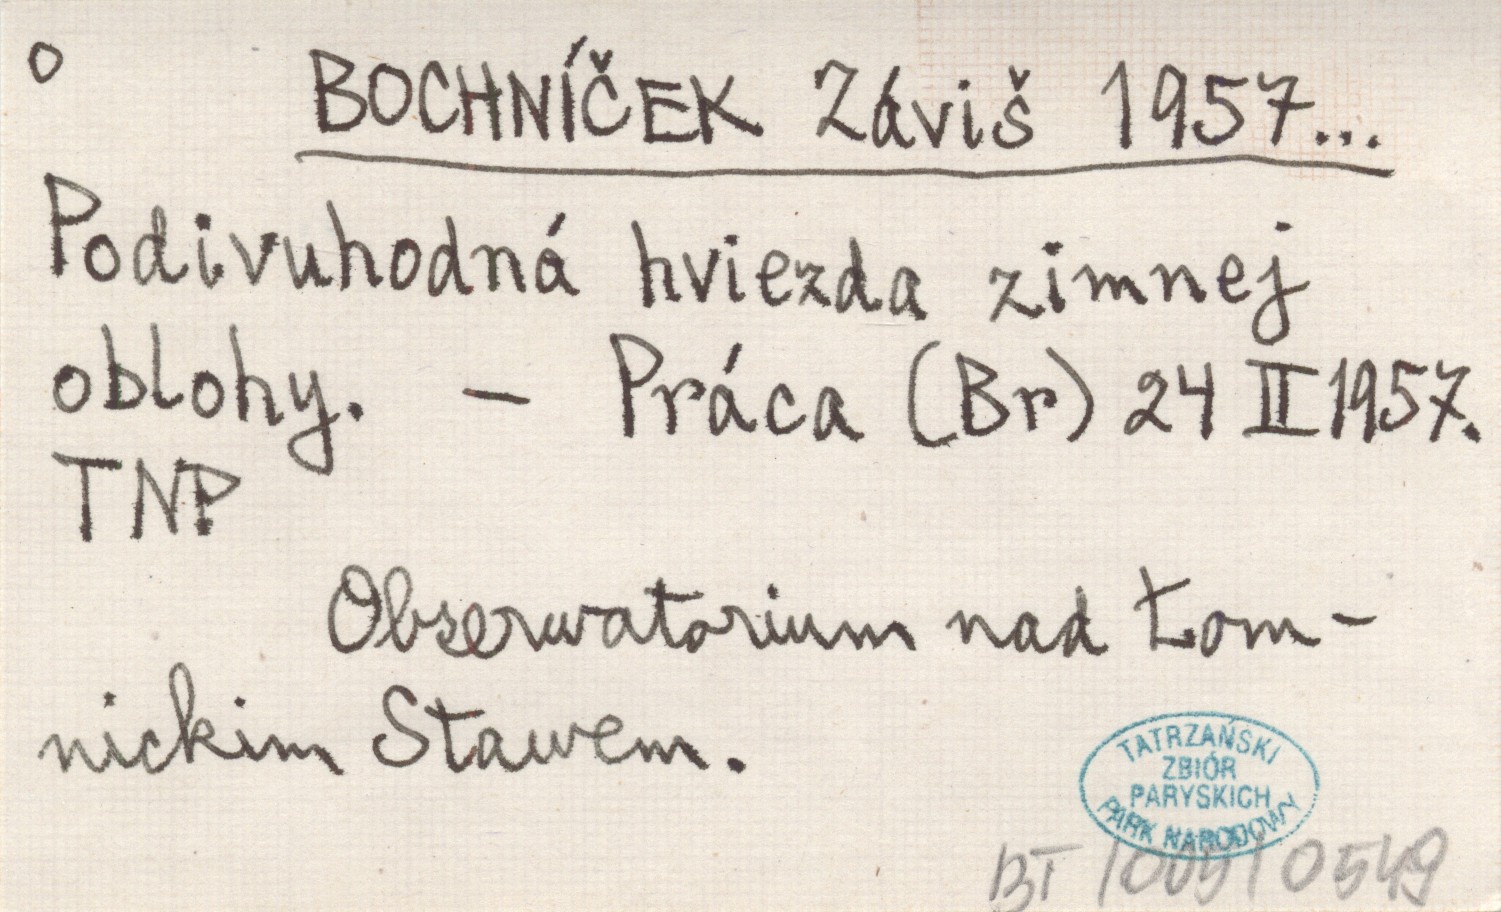 o BOCHNÍČEK Záviš 1957...
Podivuhodná hviezda zimnej
oblohy. – Práca (Br) 24 II 1957.
TNP
Obserwatorium nad Łom-
nickim Stawem.
TATRZAŃSKI
ZBIÓR
PARYSKICH
PARK NARODOWY
BT /009/ 0549